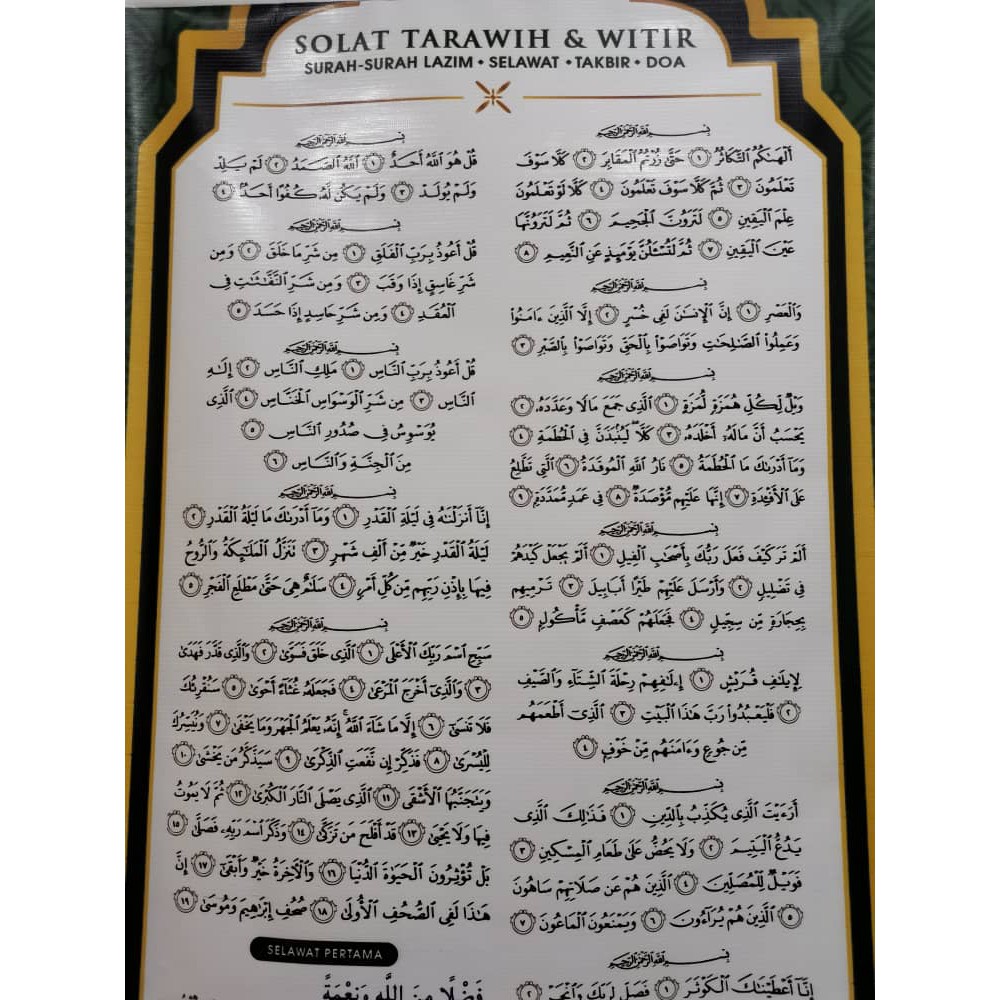 SOLAT TARAWIH & WITIR
SURAH-SURAH LAZIM • SELAWAT • TAKBIR • DOA
بِسْمِ اللَّهِ الرَّحْمَٰنِ الرَّحِيمِ
أَلْهَىٰكُمُ ٱلتَّكَاثُرُ ١ حَتَّىٰ زُرْتُمُ ٱلْمَقَابِرَ ٢ كَلَّا سَوْفَ
تَعْلَمُونَ ٣ ثُمَّ كَلَّا سَوْفَ تَعْلَمُونَ ٤ كَلَّا لَوْ تَعْلَمُونَ
عِلْمَ ٱلْيَقِينِ ٥ لَتَرَوُنَّ ٱلْجَحِيمَ ٦ ثُمَّ لَتَرَوُنَّهَا
عَيْنَ ٱلْيَقِينِ ٧ ثُمَّ لَتُسْـَٔلُنَّ يَوْمَئِذٍ عَنِ ٱلنَّعِيمِ ٨
بِسْمِ اللَّهِ الرَّحْمَٰنِ الرَّحِيمِ
وَٱلْعَصْرِ ١ إِنَّ ٱلْإِنسَٰنَ لَفِى خُسْرٍ ٢ إِلَّا ٱلَّذِينَ ءَامَنُوا۟
وَعَمِلُوا۟ ٱلصَّٰلِحَٰتِ وَتَوَاصَوْا۟ بِٱلْحَقِّ وَتَوَاصَوْا۟ بِٱلصَّبْرِ ٣
بِسْمِ اللَّهِ الرَّحْمَٰنِ الرَّحِيمِ
وَيْلٌ لِّكُلِّ هُمَزَةٍ لُّمَزَةٍ ١ ٱلَّذِى جَمَعَ مَالًا وَعَدَّدَهُۥ ٢
يَحْسَبُ أَنَّ مَالَهُۥٓ أَخْلَدَهُۥ ٣ كَلَّا ۖ لَيُنۢبَذَنَّ فِى ٱلْحُطَمَةِ ٤
وَمَآ أَدْرَىٰكَ مَا ٱلْحُطَمَةُ ٥ نَارُ ٱللَّهِ ٱلْمُوقَدَةُ ٦ ٱلَّتِى تَطَّلِعُ
عَلَى ٱلْأَفْـِٔدَةِ ٧ إِنَّهَا عَلَيْهِم مُّؤْصَدَةٌ ٨ فِى عَمَدٍ مُّمَدَّدَةٍۭ ٩
بِسْمِ اللَّهِ الرَّحْمَٰنِ الرَّحِيمِ
أَلَمْ تَرَ كَيْفَ فَعَلَ رَبُّكَ بِأَصْحَٰبِ ٱلْفِيلِ ١ أَلَمْ يَجْعَلْ كَيْدَهُمْ
فِى تَضْلِيلٍ ٢ وَأَرْسَلَ عَلَيْهِمْ طَيْرًا أَبَابِيلَ ٣ تَرْمِيهِم
بِحِجَارَةٍ مِّن سِجِّيلٍ ٤ فَجَعَلَهُمْ كَعَصْفٍ مَّأْكُولٍۭ ٥
بِسْمِ اللَّهِ الرَّحْمَٰنِ الرَّحِيمِ
لِإِيلَٰفِ قُرَيْشٍ ١ إِۦلَٰفِهِمْ رِحْلَةَ ٱلشِّتَآءِ وَٱلصَّيْفِ
٢ فَلْيَعْبُدُوا۟ رَبَّ هَٰذَا ٱلْبَيْتِ ٣ ٱلَّذِىٓ أَطْعَمَهُم
مِّن جُوعٍ وَءَامَنَهُم مِّنْ خَوْفٍۭ ٤
بِسْمِ اللَّهِ الرَّحْمَٰنِ الرَّحِيمِ
أَرَءَيْتَ ٱلَّذِى يُكَذِّبُ بِٱلدِّينِ ١ فَذَٰلِكَ ٱلَّذِى
يَدُعُّ ٱلْيَتِيمَ ٢ وَلَا يَحُضُّ عَلَىٰ طَعَامِ ٱلْمِسْكِينِ ٣
فَوَيْلٌ لِّلْمُصَلِّينَ ٤ ٱلَّذِينَ هُمْ عَن صَلَاتِهِمْ سَاهُونَ
٥ ٱلَّذِينَ هُمْ يُرَآءُونَ ٦ وَيَمْنَعُونَ ٱلْمَاعُونَ ٧
بِسْمِ اللَّهِ الرَّحْمَٰنِ الرَّحِيمِ
إِنَّآ أَعْطَيْنَٰكَ ٱلْكَوْثَرَ ١ فَصَلِّ لِرَبِّكَ وَٱنْحَرْ ٢
بِسْمِ اللَّهِ الرَّحْمَٰنِ الرَّحِيمِ
قُلْ هُوَ ٱللَّهُ أَحَدٌ ١ ٱللَّهُ ٱلصَّمَدُ ٢ لَمْ يَلِدْ
وَلَمْ يُولَدْ ٣ وَلَمْ يَكُن لَّهُۥ كُفُوًا أَحَدٌۢ ٤
بِسْمِ اللَّهِ الرَّحْمَٰنِ الرَّحِيمِ
قُلْ أَعُوذُ بِرَبِّ ٱلْفَلَقِ ١ مِن شَرِّ مَا خَلَقَ ٢ وَمِن
شَرِّ غَاسِقٍ إِذَا وَقَبَ ٣ وَمِن شَرِّ ٱلنَّفَّٰثَٰتِ فِى
ٱلْعُقَدِ ٤ وَمِن شَرِّ حَاسِدٍ إِذَا حَسَدَ ٥
بِسْمِ اللَّهِ الرَّحْمَٰنِ الرَّحِيمِ
قُلْ أَعُوذُ بِرَبِّ ٱلنَّاسِ ١ مَلِكِ ٱلنَّاسِ ٢ إِلَٰهِ
ٱلنَّاسِ ٣ مِن شَرِّ ٱلْوَسْوَاسِ ٱلْخَنَّاسِ ٤ ٱلَّذِى
يُوَسْوِسُ فِى صُدُورِ ٱلنَّاسِ ٥
مِنَ ٱلْجِنَّةِ وَٱلنَّاسِ ٦
بِسْمِ اللَّهِ الرَّحْمَٰنِ الرَّحِيمِ
إِنَّآ أَنزَلْنَٰهُ فِى لَيْلَةِ ٱلْقَدْرِ ١ وَمَآ أَدْرَىٰكَ مَا لَيْلَةُ ٱلْقَدْرِ ٢
لَيْلَةُ ٱلْقَدْرِ خَيْرٌ مِّنْ أَلْفِ شَهْرٍ ٣ تَنَزَّلُ ٱلْمَلَٰٓئِكَةُ وَٱلرُّوحُ
فِيهَا بِإِذْنِ رَبِّهِم مِّن كُلِّ أَمْرٍ ٤ سَلَٰمٌ هِىَ حَتَّىٰ مَطْلَعِ ٱلْفَجْرِ ٥
بِسْمِ اللَّهِ الرَّحْمَٰنِ الرَّحِيمِ
سَبِّحِ ٱسْمَ رَبِّكَ ٱلْأَعْلَى ١ ٱلَّذِى خَلَقَ فَسَوَّىٰ ٢ وَٱلَّذِى قَدَّرَ فَهَدَىٰ
٣ وَٱلَّذِىٓ أَخْرَجَ ٱلْمَرْعَىٰ ٤ فَجَعَلَهُۥ غُثَآءً أَحْوَىٰ ٥ سَنُقْرِئُكَ
فَلَا تَنسَىٰٓ ٦ إِلَّا مَا شَآءَ ٱللَّهُ ۚ إِنَّهُۥ يَعْلَمُ ٱلْجَهْرَ وَمَا يَخْفَىٰ ٧ وَنُيَسِّرُكَ
لِلْيُسْرَىٰ ٨ فَذَكِّرْ إِن نَّفَعَتِ ٱلذِّكْرَىٰ ٩ سَيَذَّكَّرُ مَن يَخْشَىٰ ١٠
وَيَتَجَنَّبُهَا ٱلْأَشْقَى ١١ ٱلَّذِى يَصْلَى ٱلنَّارَ ٱلْكُبْرَىٰ ١٢ ثُمَّ لَا يَمُوتُ
فِيهَا وَلَا يَحْيَىٰ ١٣ قَدْ أَفْلَحَ مَن تَزَكَّىٰ ١٤ وَذَكَرَ ٱسْمَ رَبِّهِۦ فَصَلَّىٰ ١٥
بَلْ تُؤْثِرُونَ ٱلْحَيَوٰةَ ٱلدُّنْيَا ١٦ وَٱلْـَٔاخِرَةُ خَيْرٌ وَأَبْقَىٰٓ ١٧ إِنَّ
هَٰذَا لَفِى ٱلصُّحُفِ ٱلْأُولَىٰ ١٨ صُحُفِ إِبْرَٰهِيمَ وَمُوسَىٰ ١٩
SELAWAT PERTAMA
فَضْلًا مِنَ اللَّهِ وَنِعْمَةً